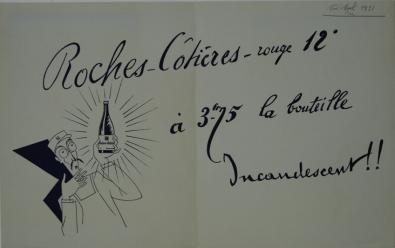 1931
Roches-Côtières - rouge 12°
à 3 frs 75 la bouteille
Incandescent!!